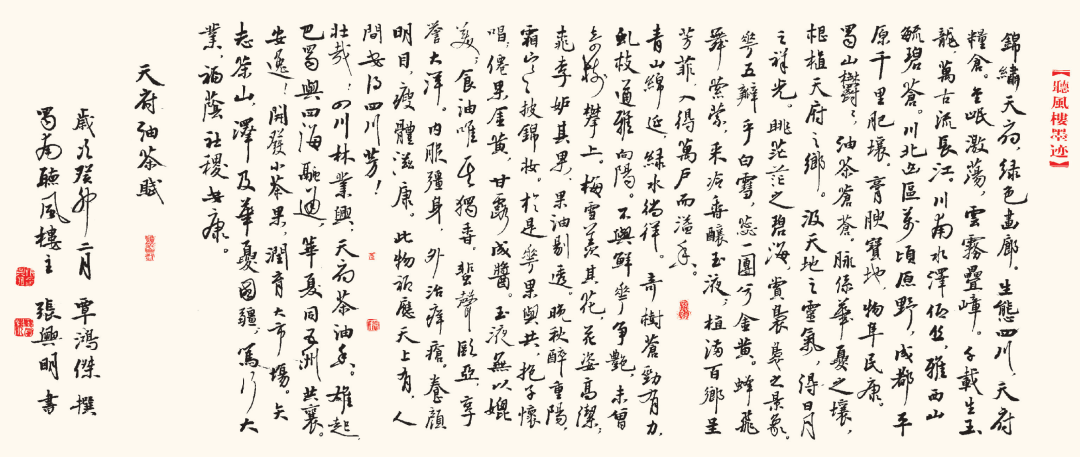 【聽風樓墨迹】
錦繡天府,綠色畫廊。生態四川,天府
糧倉。金岷激蕩,雲霧疊嶂。千載生玉
龍,萬古流長江。川南水澤,雅西山
毓碧蒼。川北丘區萬頃原野,成都平
原千里肥壤。膏腴寶地,物阜民康。
蜀山欝欝,油茶蒼蒼。脉係華夏之壤,
根植天府之鄉。汲天地之靈氣,得日月
之祥光。眺茫茫之碧海,賞裊裊之景象。
華五瓣乎白雪,蕊一團兮金黄。蜂飛
舞縈縈,来洽香釀玉液,植满百鄉呈
芳菲,入得萬户而溢香。
青山綿延,緑水徜徉。奇樹蒼勁有力,
虬枝遒雅向陽。不與鮮華争艷,未曾
攀上,梅雪羡其花,花姿高潔;
桃李妒其果,果油剔透。晚秋醉重陽,
霜披錦妝,於是華果與共,抱子懷
唱,僊果金黄,甘露成醬。玉液無以媲
美,食油唯獨尊。蜚聲歐亞,享
譽大洋。内服彊身,外治痒瘡。養顔
明目,瘦體滋康。此物祗應天上有,人
間安得四川芳!
壯哉!四川林業興,天府茶油香。雄起
巴蜀與四海融通,華夏同五洲共襄。
安逸!開發小茶果,潤育大市場。矢
志茶山,澤及華夏國疆,篤行大
業福蔭社稷安康。
天府油茶賦
歲次癸卯二月 覃鴻傑撰
蜀南聽風樓主 張興明書